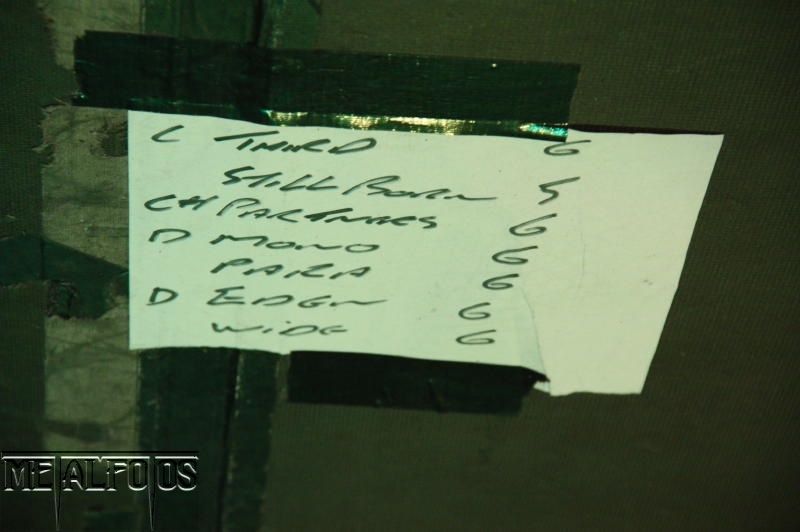 L THIRD 6
STILLBORN 5
CH PARTNERS 6
D MONO 6
PARA 6
D EDEN 6
WIDE 6
METALFOTOS